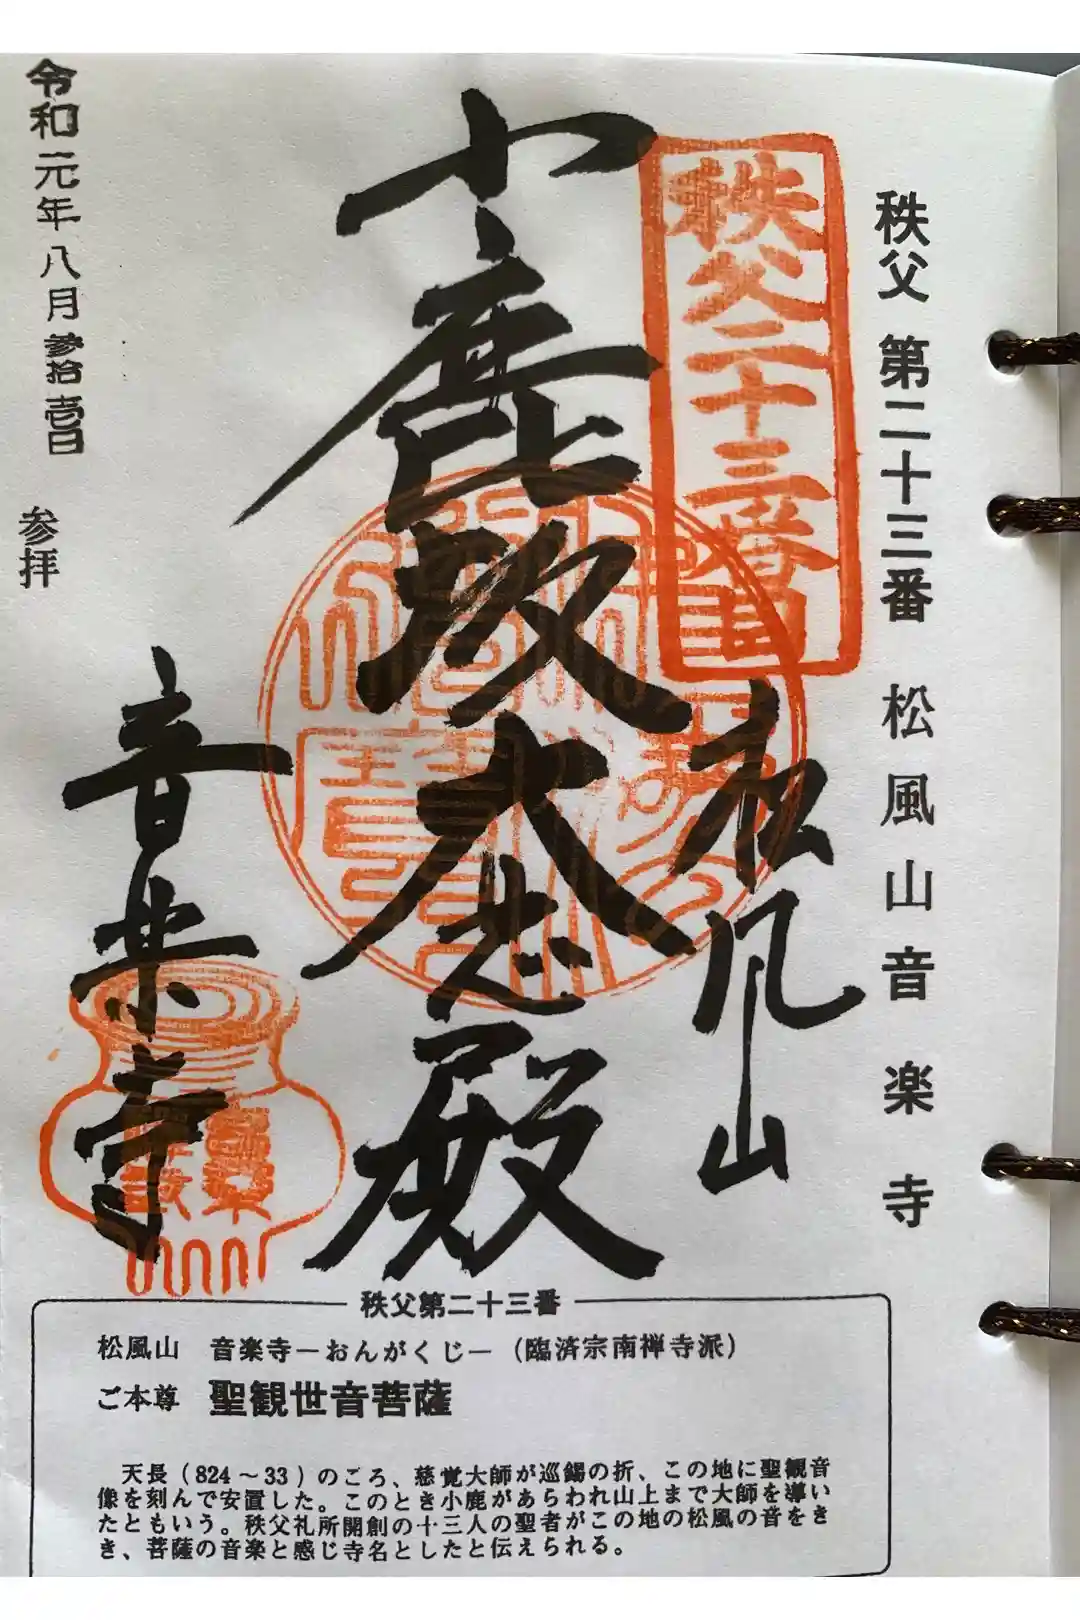 秩父 第二十三番 松風山音楽寺
秩父二十三番
松風山
小鹿坂大悲殿
音楽寺
令和元年八月参拾壱日
参拝
秩父第二十三番
松風山 音楽寺－おんがくじ－（臨済宗南禅寺派）
ご本尊 聖観世音菩薩
天長（824～33）のころ、慈覚大師が巡錫の折、この地に聖観音
像を刻んで安置した。このとき小鹿があらわれ山上まで大師を導い
たともいう。秩父札所開創の十三人の聖者がこの地の松風の音をき
き、菩薩の音楽と感じ寺名としたと伝えられる。